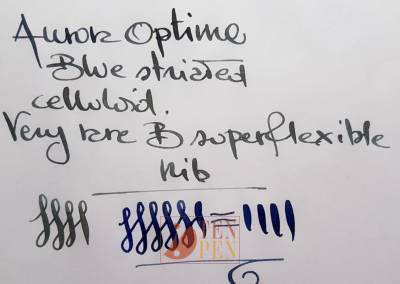 Aurora Optima
Blue striated
celluloid.
Very rare B superflexible
nib
TEN
PEN